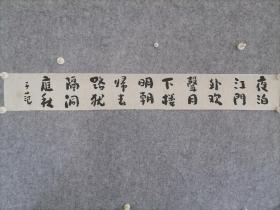 夜泊
江門
外歡
聲月
下樓
明朝
歸去
路猶
隔洞
庭秋
子范